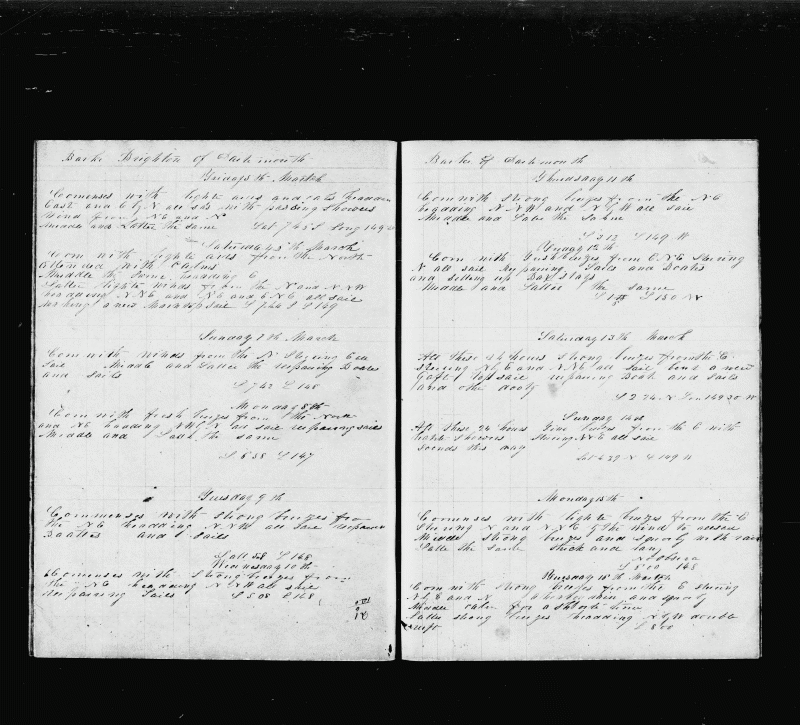 Barke Brighton of Dartmouth
Friday 5th March
Comenses with lights aires and cals headden
East and E by N all sail with passing showers
Wind from N E and N
Middle and Latter the same Lat 7,45 S Long 149
Saturday 6th March
Com with lights aires from the North
attended with calms
Middle the same heading E
Latter lights winds from the N and N N W
headding N N E and N E and E N E all sail
Sunday 7th March
Com with winds from the N Stering E all
Sail Middle and Latter the same repairing Boates
and sails
L 742 L 148
Monday 8th
Com with fresh brezes from the North
and N E heading N W by N all sail repairing sails
Middle and Latter the same
L 638 L 147
Tuesday 9th
Comenses with strong brezes from
the N E headding N N W all sail repairen
Boattes and Sails
Latt 5.8 L 148
Wednesday 10th
Comenses with strong brezes from
the N E headding N N W all sail
repairing Sails L 508 L 148
Barke of Dartmouth
Thursday 11th
Com with strong brezes from the N E
headding N N W and N by W all sail
Middle and Latter the Same
L 312 L 149 W
Fryday 12th
Com with fresh brezes from E N E stering
N all sail repairing Sails and Boates
and setting up Back stays
Middle and Latter the same
L 150 W
Saturday 13th March
All these 24 hours strong brezes from the E
stering N by E and N N E all sail bent a new
Gaft topsail repairing Boats and sails
and other dooty
L 2 24 N Lon 149 30 W
Sunday 14th
All these 24 hours fine brezes from the E with
lights showers Stering N N E all sail
soends this day
Lat 4 29 N L 149 W
Monday 15th
Comenses with lights brezes from the E
Stering N and N N E
Middle strong brezes and squaly with rain
Latter the same thick and rany
No Observa
L 5 00 148
Com with strong brezes from the E stering
N by E and N and squaly
Middle calm for a shorte time
Latter strong brezes headding N by W double
reeft